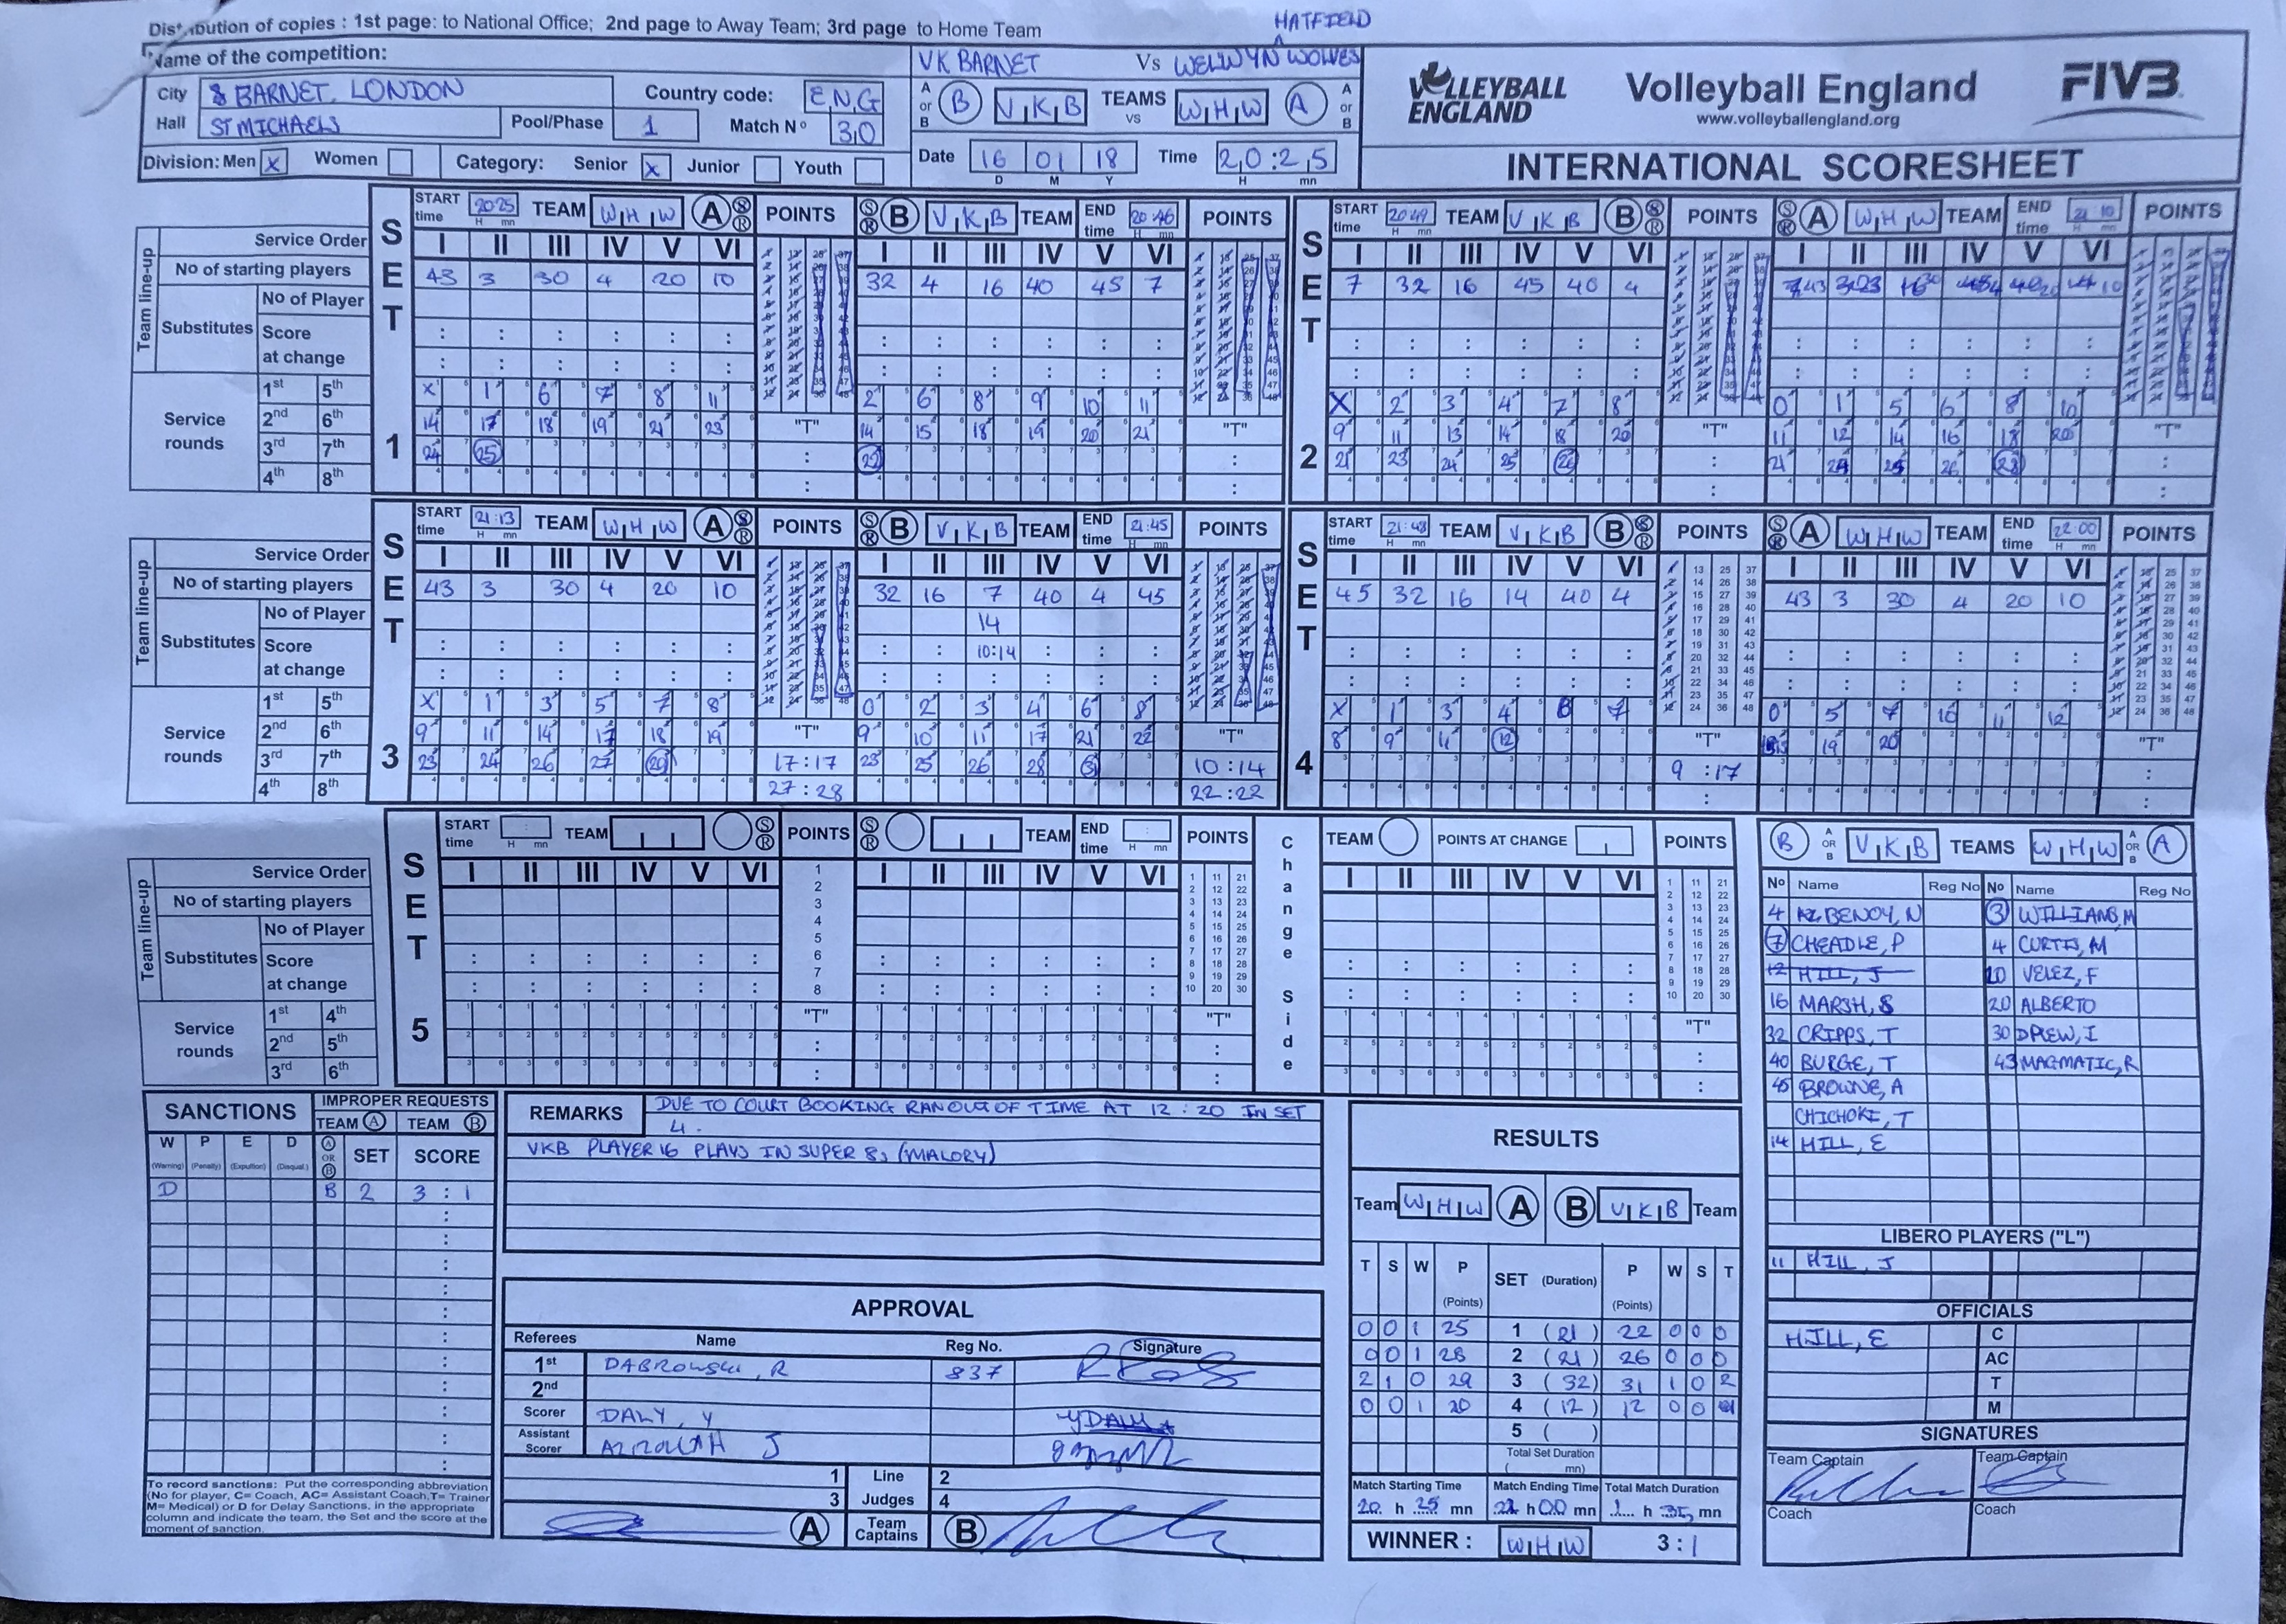 Distribution of copies : 1st page: to National Office; 2nd page to Away Team; 3rd page to Home Team
HATFIELD
Name of the competition:
VK BARNET Vs WELWYN WOLVES
City BARNET, LONDON Country code: ENG
Hall ST MICHAELS Pool/Phase 1 Match Nº 30
A or B B VKB TEAMS vs WHW A A or B
Division: Men X Women Category: Senior X Junior Youth
Date 16 01 18 Time 20:25
D M Y H mn
VOLLEYBALL ENGLAND
Volleyball England
www.volleyballengland.org
FIVB
INTERNATIONAL SCORESHEET
SET 1
START time 20:25 TEAM WHW A S R POINTS S R B VKB TEAM END time 20:46 POINTS
Service Order I II III IV V VI I II III IV V VI
Team line-up
No of starting players 43 3 30 4 20 10 32 4 16 40 45 7
Substitutes No of Player
Score at change
Service rounds
1st 5th X 1 6 7 8 11 2 6 8 9 10 11
2nd 6th 14 17 18 19 21 23 "T" 14 15 18 19 20 21 "T"
3rd 7th 24 25 22
4th 8th
SET 2
START time 20:49 TEAM VKB B S R POINTS S R A WHW TEAM END time 21:10 POINTS
I II III IV V VI I II III IV V VI
7 32 16 45 40 4
X 2 3 4 7 8 0 1 5 6 8 10
9 11 13 14 18 20 "T" 11 12 14 16 18 20 "T"
21 23 24 25 26 21 24 25 26 28
SET 3
START time 21:13 TEAM WHW A S R POINTS S R B VKB TEAM END time 21:45 POINTS
Service Order I II III IV V VI I II III IV V VI
Team line-up
No of starting players 43 3 30 4 20 10 32 16 7 40 4 45
Substitutes No of Player 14
Score at change 10:14
Service rounds
1st 5th X 1 3 5 7 8 0 2 3 4 6 8
2nd 6th 9 11 14 17 18 19 "T" 9 10 11 17 21 22 "T"
3rd 7th 23 24 26 27 29 17:17 23 25 26 28 31 10:14
4th 8th 27:28 22:22
SET 4
START time 21:48 TEAM VKB B S R POINTS S R A WHW TEAM END time 22:00 POINTS
I II III IV V VI I II III IV V VI
45 32 16 14 40 4 43 3 30 4 20 10
X 1 3 4 6 7 0 5 7 10 11 12
8 9 11 12 "T" 19 20 "T"
9:17
SET 5
START time TEAM S R POINTS S R TEAM END time POINTS
H mn
Service Order I II III IV V VI I II III IV V VI
Team line-up
No of starting players
Substitutes No of Player
Score at change
Service rounds
1st 4th "T" "T"
2nd 5th
3rd 6th
Change Side
TEAM POINTS AT CHANGE POINTS
I II III IV V VI
"T"
B A OR B VKB TEAMS WHW A OR B A
No Name Reg No No Name Reg No
4 BENOY, N 3 WILLIAMS, M
7 CHEADLE, P 4 CURTIS, M
12 HILL, J 10 VELEZ, F
16 MARSH, S 20 ALBERTO
32 CRIPPS, T 30 DREW, I
40 BURGE, T 43 MAGMATIC, R
45 BROWNE, A
CHICHOKE, T
14 HILL, E
LIBERO PLAYERS ("L")
11 HILL, J
OFFICIALS
HILL, E C
AC
T
M
SIGNATURES
Team Captain Team Captain
Coach Coach
SANCTIONS IMPROPER REQUESTS
TEAM A TEAM B
W P E D A OR B SET SCORE
(Warning) (Penalty) (Expultion) (Disqual.)
D B 2 3 : 1
To record sanctions: Put the corresponding abbreviation
(No for player, C= Coach, AC= Assistant Coach,T= Trainer
M= Medical) or D for Delay Sanctions, in the appropriate
column and indicate the team, the Set and the score at the
moment of sanction.
REMARKS DUE TO COURT BOOKING RAN OUT OF TIME AT 12:20 IN SET
4.
VKB PLAYER 16 PLAYS IN SUPER 8s (MALORY)
APPROVAL
Referees Name Reg No. Signature
1st DABROWSKI, R 837
2nd
Scorer DALY, Y YDALY
Assistant Scorer J
1 Line 2
3 Judges 4
A Team Captains B
RESULTS
Team WHW A B VKB Team
T S W P SET (Duration) P W S T
(Points) (Points)
0 0 1 25 1 (21) 22 0 0 0
0 0 1 28 2 (21) 26 0 0 0
2 1 0 29 3 (32) 31 1 0 2
0 0 1 20 4 (12) 12 0 0
5 ( )
Total Set Duration
( mn)
Match Starting Time Match Ending Time Total Match Duration
20 h 25 mn 22 h 00 mn 1 h 35 mn
WINNER : WHW 3 : 1